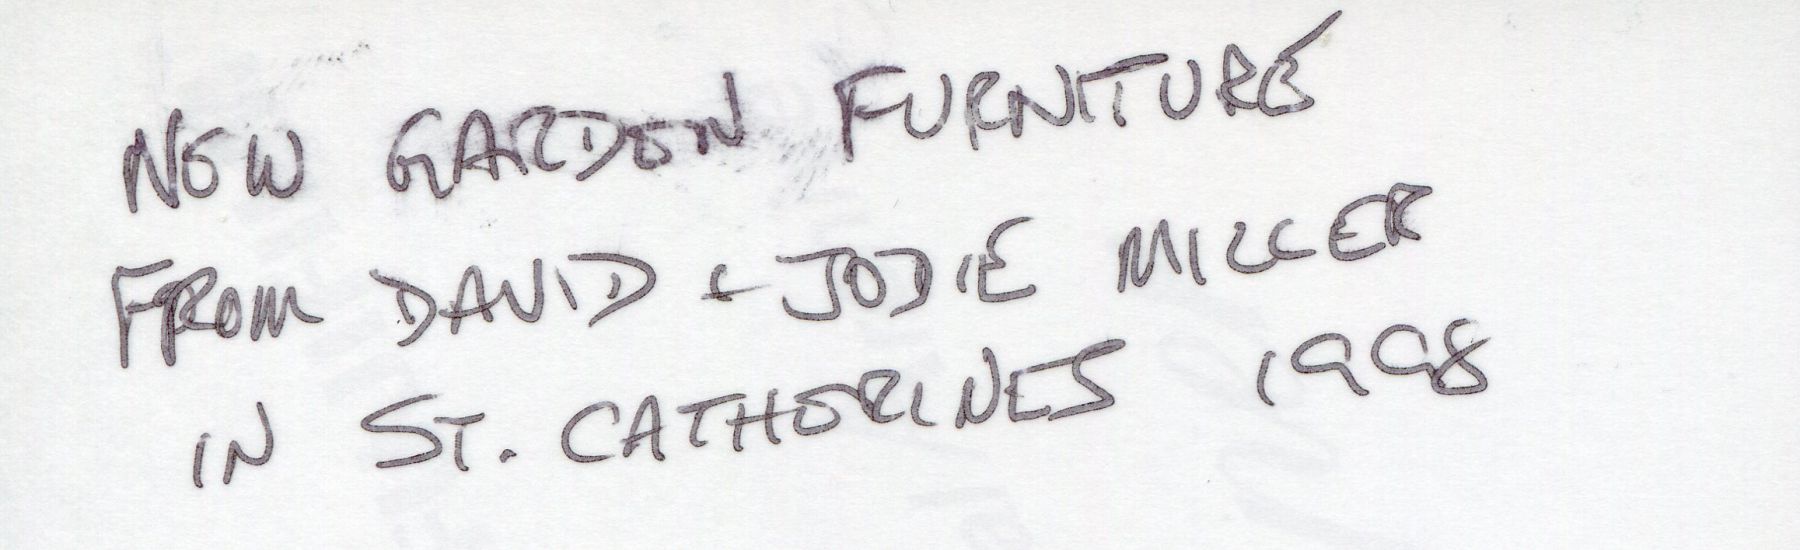 NEW GARDEN FURNITURE
FROM DAVID + JODIE MILLER
IN ST. CATHERINES 1998